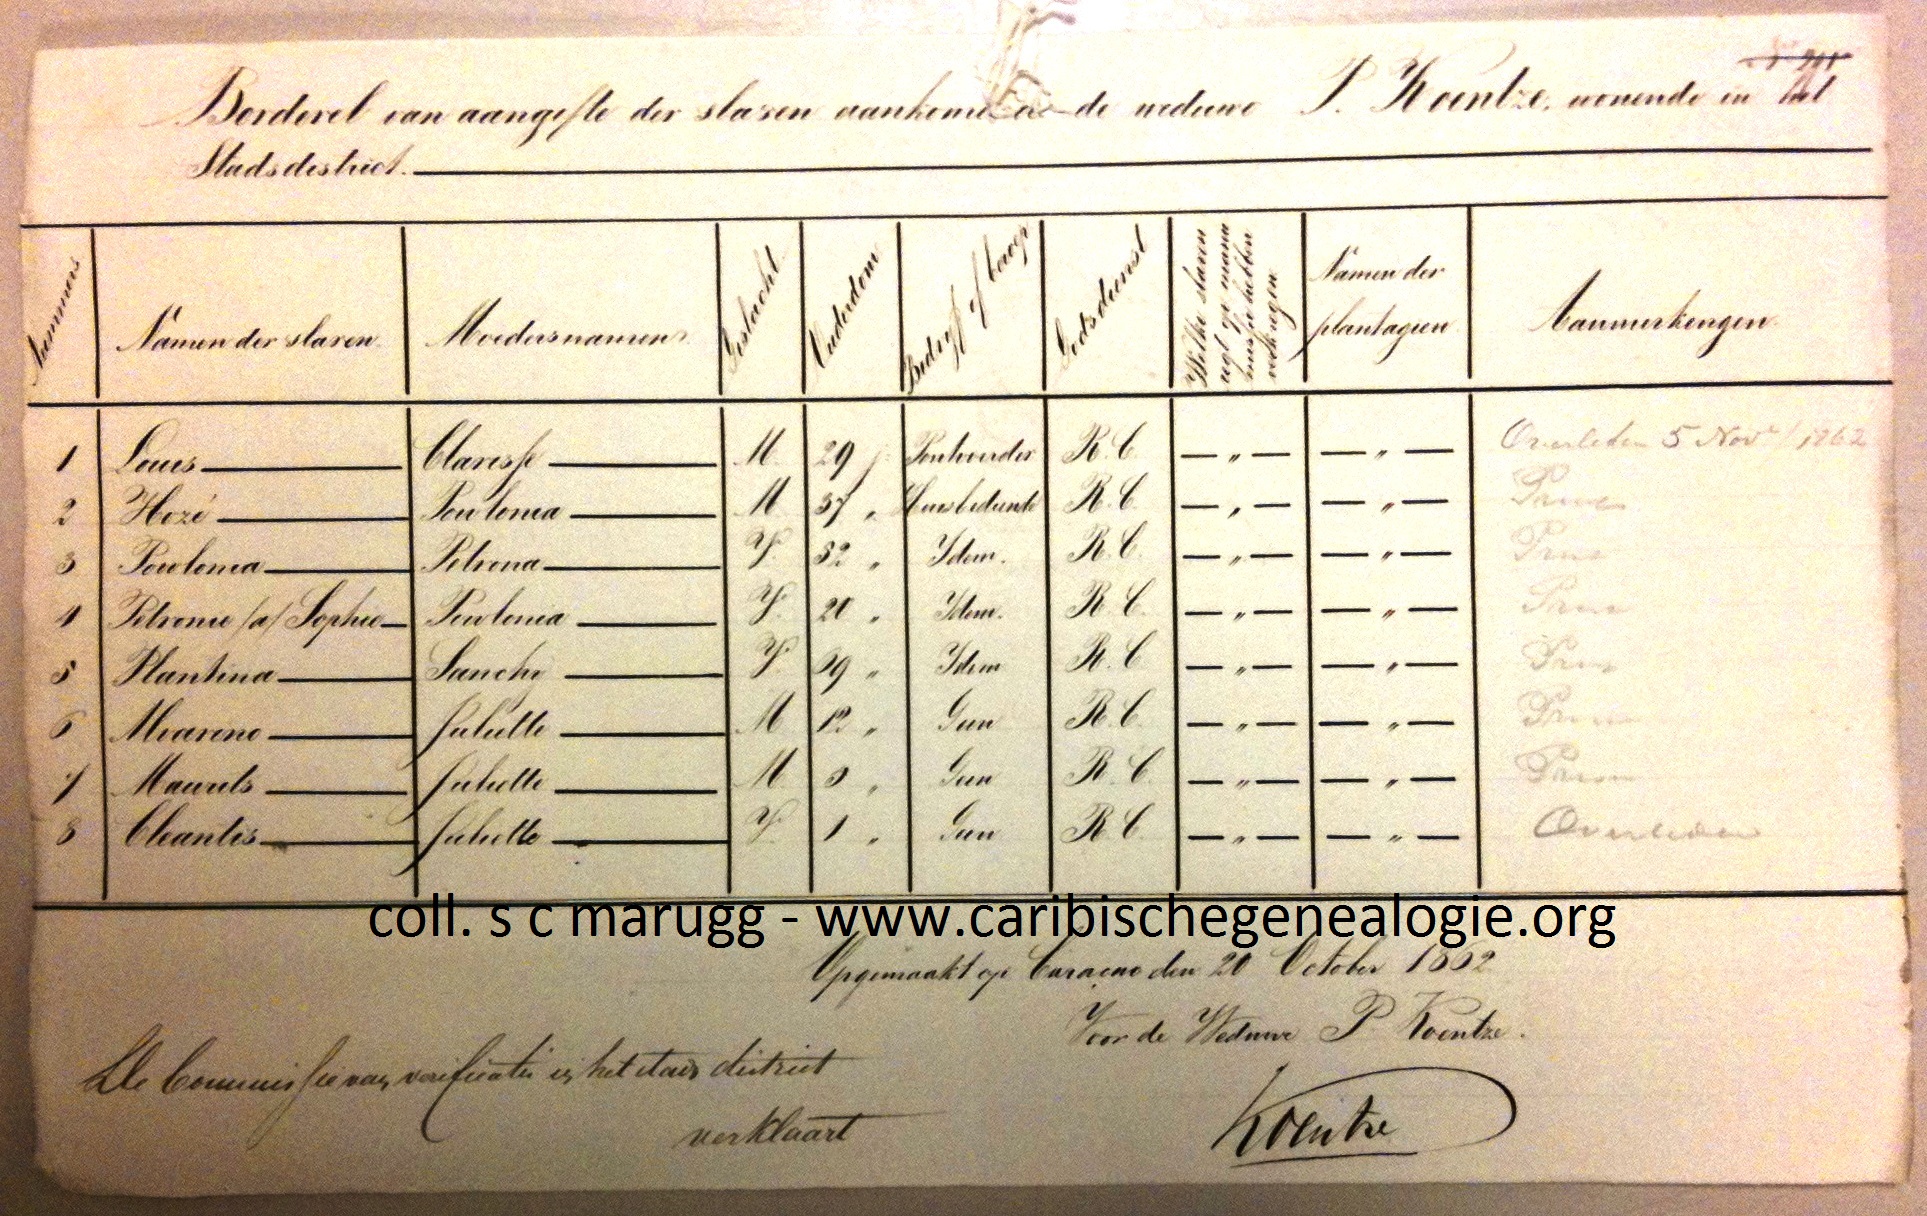 Borderel van aangifte der slaven aankomende de weduwe P. Koentze, wonende in het
Stadsdistrict.
Nummers
Namen der slaven
Moedersnamen
Geslacht
Ouderdom
Bedrijf of beroep
Godsdienst
Welke slaven regt op manumissie hebben verkregen
Namen der plantagien
Aanmerkingen
1 Louis Clarisse M. 29 j. Pontvoerder R. C. — „ — — „ — Overleden 5 Nov. 1862
2 Hozé Poulonia M 37 „ Huisbediende R. C. — „ — — „ —
3 Poulonia Petrona V. 52 „ Idem. R. C. — „ — — „ —
4 Petronie /a/ Sophie Poulonia V. 20 „ Idem. R. C. — „ — — „ —
5 Plantina Sanchi V. 39 „ Idem R. C — „ — — „ —
6 Alvareno Juliette M 12 „ Geen R. C. — „ — — „ —
7 Maurits Juliette M „ Geen R. C. — „ — — „ —
8 Cleantis Juliette V. 1 „ Geen R. C. — „ — — „ — Overleden
coll. s c marugg - www.caribischegenealogie.org
Opgemaakt op Curaçao den 20 October 1862
Voor de Weduwe P Koentze.
De Commissie van verificatie in het stads district
verklaart
Koentze